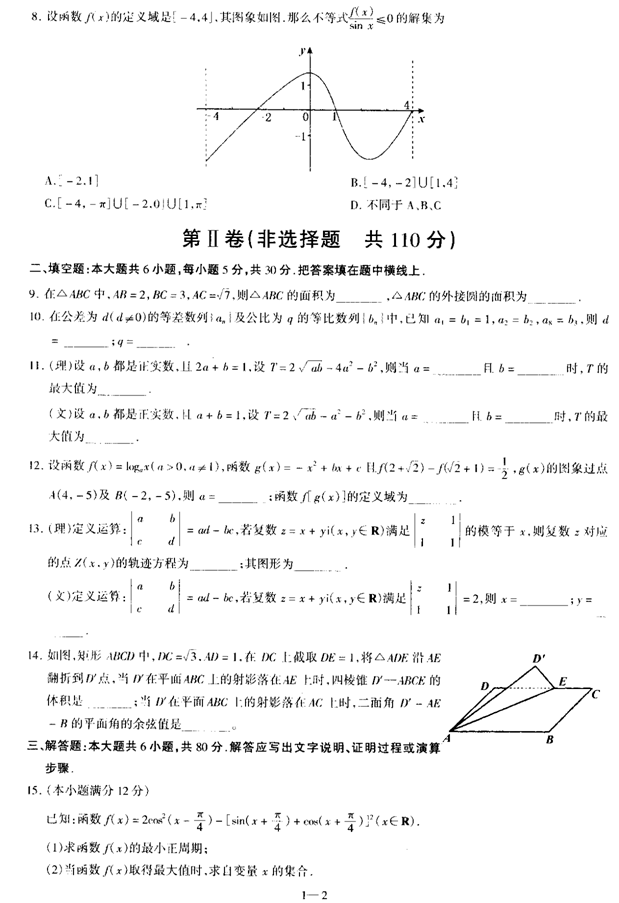 8. 设函数 f(x)的定义域是[-4,4],其图象如图.那么不等式f(x)/sin x≤0的解集为
y
1
-4 -2 0 1 4 x
-1
A.[-2,1] B.[-4,-2]∪[1,4]
C.[-4,-π]∪[-2,0]∪[1,π] D. 不同于 A、B、C
第Ⅱ卷(非选择题 共 110 分)
二、填空题:本大题共 6 小题,每小题 5 分,共 30 分.把答案填在题中横线上.
9. 在△ABC 中,AB=2,BC=3,AC=√7,则△ABC 的面积为______,△ABC 的外接圆的面积为______.
10. 在公差为 d(d≠0)的等差数列{aₙ}及公比为 q 的等比数列{bₙ}中,已知 a₁=b₁=1,a₂=b₂,a₈=b₃,则 d
=______;q=______.
11. (理)设 a,b 都是正实数,且 2a+b=1,设 T=2√ab-4a²-b²,则当 a=______且 b=______时,T 的
最大值为______.
(文)设 a,b 都是正实数,且 a+b=1,设 T=2√ab-a²-b²,则当 a=______且 b=______时,T 的最
大值为______.
12. 设函数 f(x)=logₐx(a>0,a≠1),函数 g(x)=-x²+bx+c 且 f(2+√2)-f(√2+1)=1/2,g(x)的图象过点
A(4,-5)及 B(-2,-5),则 a=______;函数 f[g(x)]的定义域为______.
13. (理)定义运算:|a b; c d|=ad-bc,若复数 z=x+yi(x,y∈R)满足|z 1; 1 1|的模等于 x,则复数 z 对应
的点 Z(x,y)的轨迹方程为______;其图形为______.
(文)定义运算:|a b; c d|=ad-bc,若复数 z=x+yi(x,y∈R)满足|z 1; 1 1|=2,则 x=______;y=
______.
14. 如图,矩形 ABCD 中,DC=√3,AD=1,在 DC 上截取 DE=1,将△ADE 沿 AE
翻折到 D′点,当 D′在平面 ABC 上的射影落在 AE 上时,四棱锥 D′—ABCE 的
体积是______;当 D′在平面 ABC 上的射影落在 AC 上时,二面角 D′-AE
-B 的平面角的余弦值是______。
D′
D E C
A B
三、解答题:本大题共 6 小题,共 80 分.解答应写出文字说明、证明过程或演算
步骤.
15. (本小题满分 12 分)
已知:函数 f(x)=2cos²(x-π/4)-[sin(x+π/4)+cos(x+π/4)]²(x∈R).
(1)求函数 f(x)的最小正周期;
(2)当函数 f(x)取得最大值时,求自变量 x 的集合.
1—2